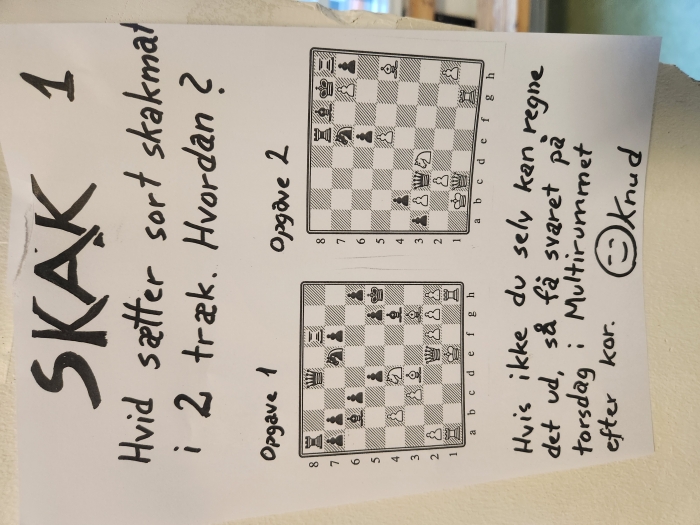 SKAK 1
Hvid sætter sort skakmat
i 2 træk. Hvordan ?
Opgave 1
8
7
6
5
4
3
2
1
a b c d e f g h
Opgave 2
8
7
6
5
4
3
2
1
a b c d e f g h
Hvis ikke du selv kan regne
det ud, så få svaret på
torsdag i Multirummet
efter kor.
Knud